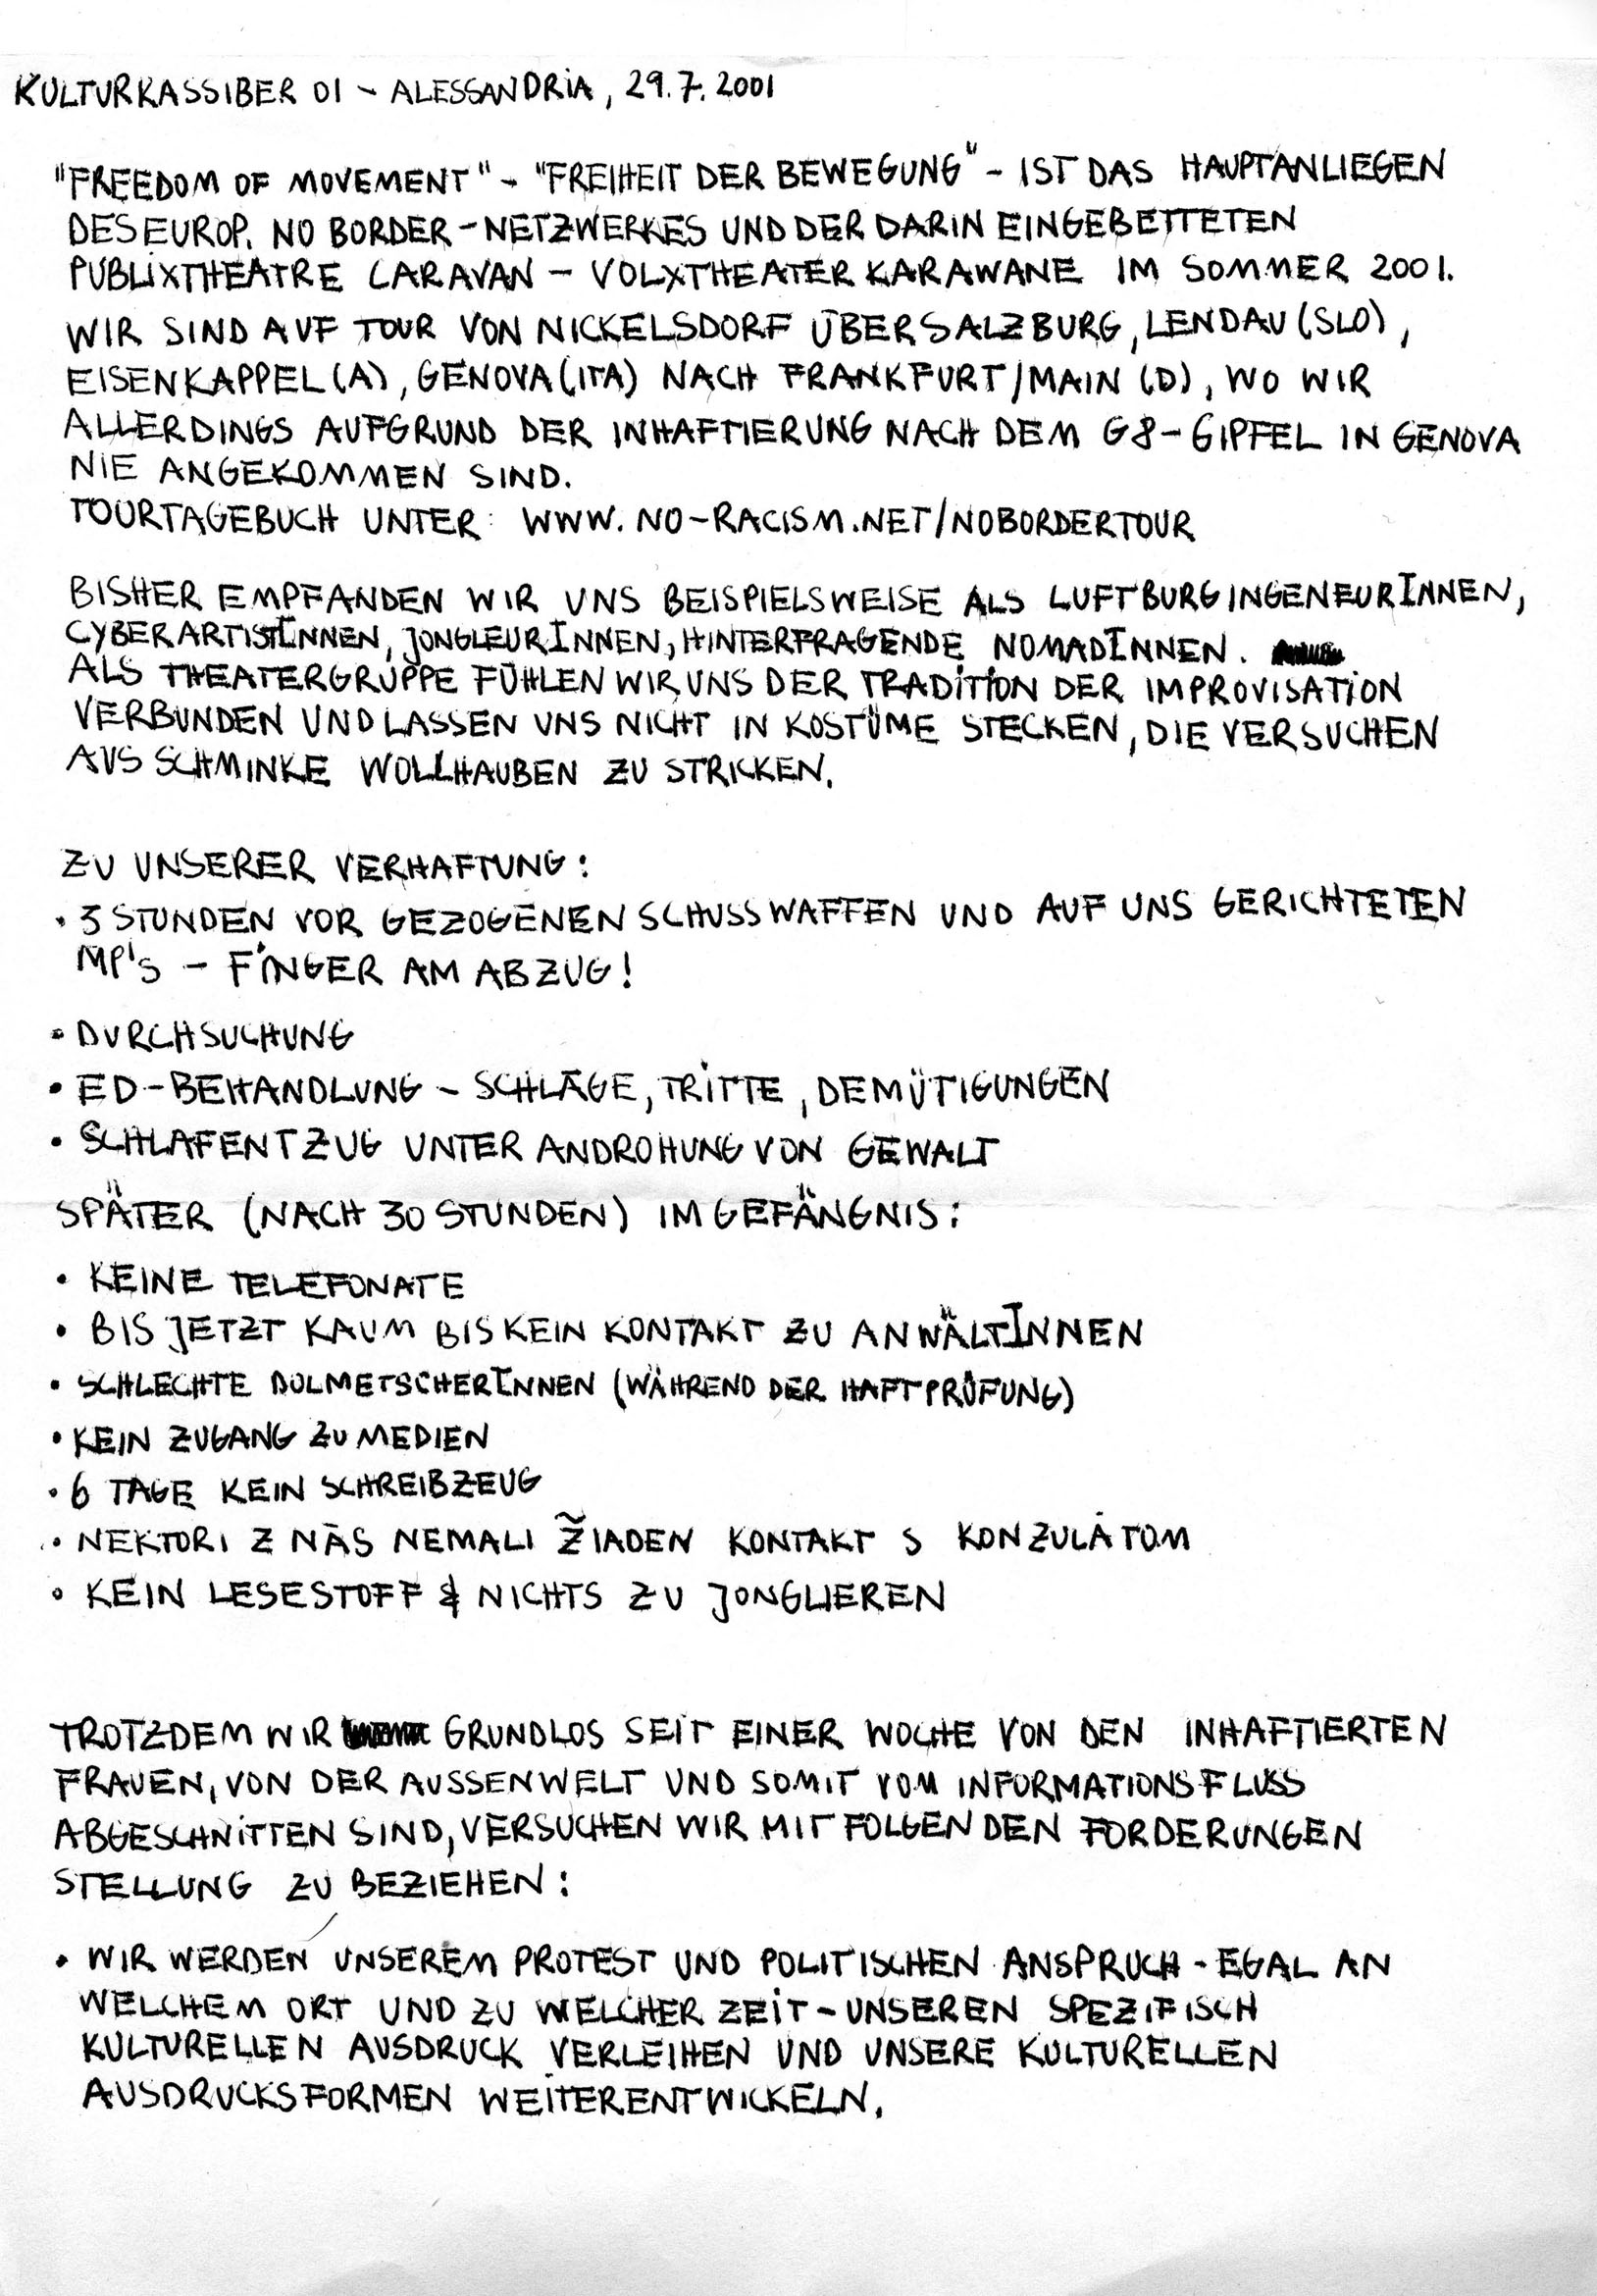 KULTURKASSIBER 01 - ALESSANDRIA, 29.7.2001
"FREEDOM OF MOVEMENT" - "FREIHEIT DER BEWEGUNG" - IST DAS HAUPTANLIEGEN
DES EUROP. NO BORDER - NETZWERKES UND DER DARIN EINGEBETTETEN
PUBLIXTHEATRE CARAVAN - VOLXTHEATER KARAWANE IM SOMMER 2001.
WIR SIND AUF TOUR VON NICKELSDORF ÜBER SALZBURG, LENDAU (SLO),
EISENKAPPEL (A), GENOVA (ITA) NACH FRANKFURT/MAIN (D), WO WIR
ALLERDINGS AUFGRUND DER INHAFTIERUNG NACH DEM G8-GIPFEL IN GENOVA
NIE ANGEKOMMEN SIND.
TOURTAGEBUCH UNTER: WWW.NO-RACISM.NET/NOBORDERTOUR
BISHER EMPFANDEN WIR UNS BEISPIELSWEISE ALS LUFTBURGINGENEURINNEN,
CYBERARTISTINNEN, JONGLEURINNEN, HINTERFRAGENDE NOMADINNEN.
ALS THEATERGRUPPE FÜHLEN WIR UNS DER TRADITION DER IMPROVISATION
VERBUNDEN UND LASSEN UNS NICHT IN KOSTÜME STECKEN, DIE VERSUCHEN
AUS SCHMINKE WOLLHAUBEN ZU STRICKEN.
ZU UNSERER VERHAFTUNG:
• 3 STUNDEN VOR GEZOGENEN SCHUSSWAFFEN UND AUF UNS GERICHTETEN
MP's - FINGER AM ABZUG!
• DURCHSUCHUNG
• ED-BEHANDLUNG - SCHLÄGE, TRITTE, DEMÜTIGUNGEN
• SCHLAFENTZUG UNTER ANDROHUNG VON GEWALT
SPÄTER (NACH 30 STUNDEN) IM GEFÄNGNIS:
• KEINE TELEFONATE
• BIS JETZT KAUM BIS KEIN KONTAKT ZU ANWÄLTINNEN
• SCHLECHTE DOLMETSCHERINNEN (WÄHREND DER HAFTPRÜFUNG)
• KEIN ZUGANG ZU MEDIEN
• 6 TAGE KEIN SCHREIBZEUG
• NEKTORI Z NÁS NEMALI ŽIADEN KONTAKT S KONZULÁTOM
• KEIN LESESTOFF & NICHTS ZU JONGLIEREN
TROTZDEM WIR GRUNDLOS SEIT EINER WOCHE VON DEN INHAFTIERTEN
FRAUEN, VON DER AUSSENWELT UND SOMIT VOM INFORMATIONSFLUSS
ABGESCHNITTEN SIND, VERSUCHEN WIR MIT FOLGENDEN FORDERUNGEN
STELLUNG ZU BEZIEHEN:
• WIR WERDEN UNSEREM PROTEST UND POLITISCHEN ANSPRUCH - EGAL AN
WELCHEM ORT UND ZU WELCHER ZEIT - UNSEREN SPEZIFISCH
KULTURELLEN AUSDRUCK VERLEIHEN UND UNSERE KULTURELLEN
AUSDRUCKSFORMEN WEITERENTWICKELN.